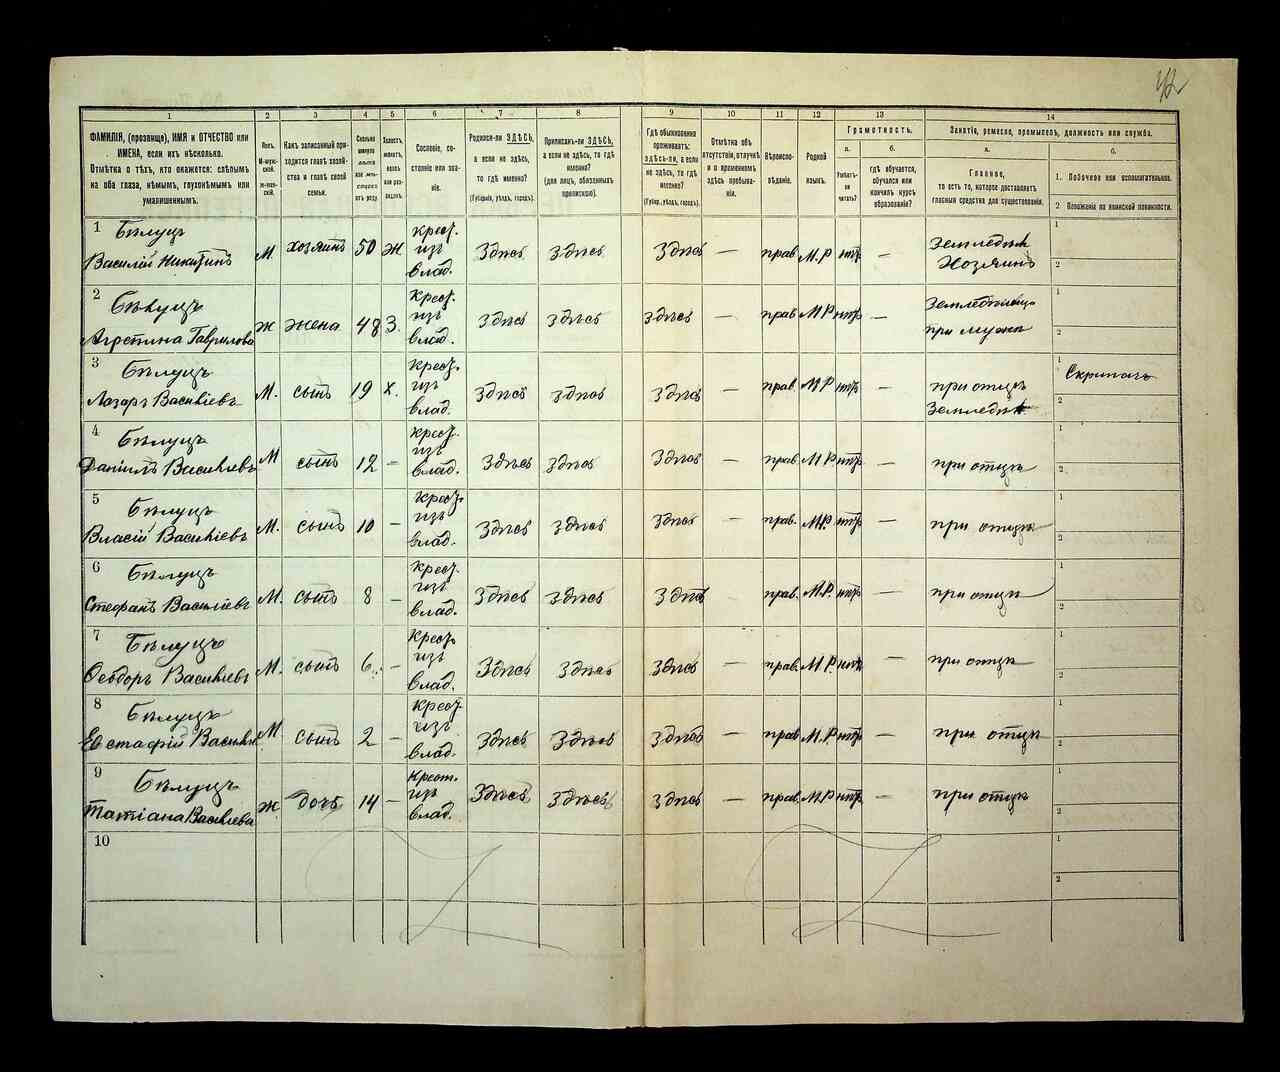 1
2
3
4
5
6
7
8
9
10
11
12
13
14
ФАМИЛІЯ, (прозвище), ИМЯ и ОТЧЕСТВО или
ИМЕНА, если ихъ нѣсколько.
Отмѣтка о тѣхъ, кто окажется: слѣпымъ
на оба глаза, нѣмымъ, глухонѣмымъ или
умалишеннымъ.
Полъ.
М-муж-
ской.
Ж-жен-
скій.
Какъ записанный при-
ходится главѣ хозяй-
ства и главѣ своей
семьи.
Сколько
минуло
лѣтъ
или мѣ-
сяцевъ
отъ роду.
Холостъ,
женатъ,
вдовъ
или раз-
веденъ.
Сословіе, со-
стояніе или зва-
ніе.
Родился-ли ЗДѢСЬ,
а если не здѣсь,
то гдѣ именно?
(Губернія, уѣздъ, городъ).
Приписанъ-ли ЗДѢСЬ,
а если не здѣсь, то гдѣ
именно?
(для лицъ, обязанныхъ
припискою).
Гдѣ обыкновенно
проживаетъ:
здѣсь-ли, а если
не здѣсь, то гдѣ
именно?
(Губер., уѣздъ, городъ).
Отмѣтка объ
отсутствіи, отлучкѣ
и о временномъ
здѣсь пребыва-
ніи.
Вѣроиспо-
вѣданіе.
Родной
языкъ.
Грамотность.
а.
Умѣетъ-
ли
читать?
б.
гдѣ обучается,
обучался или
кончилъ курсъ
образованія?
Занятіе, ремесло, промыселъ, должность или служба.
а.
Главное,
то есть то, которое доставляетъ
главныя средства для существованія.
б.
1. Побочное или вспомогательное.
2 Положеніе по воинской повинности.
1 Бѣлуцъ
Василій Никитинъ М. хозяинъ 50 Ж крест. изъ влад. Здѣсь Здѣсь Здѣсь — прав М.Р нѣтъ — Земледѣл Хозяинъ 1 2
2 Бѣлуцъ
Агрепина Гаврилова Ж жена 48 З. Крест. изъ влад. Здѣсь Здѣсь Здѣсь — прав М.Р нѣтъ — при мужѣ 1 2
3 Бѣлуцъ
Лазарь Василіевъ М. сынъ 19 Х. Крест. изъ влад. Здѣсь Здѣсь Здѣсь — прав. М.Р нѣтъ — при отцѣ Земледѣл 1 Скрипачъ 2
4 Бѣлуцъ
Даніилъ Василіевъ М сынъ 12 — Крест. изъ влад. Здѣсь Здѣсь Здѣсь — прав. М.Р нѣтъ — при отцѣ 1 2
5 Бѣлуцъ
Власій Василіевъ М. сынъ 10 — Крест. изъ влад. Здѣсь Здѣсь Здѣсь — прав. М.Р. нѣтъ — при отцѣ 1 2
6 Бѣлуцъ
Стефанъ Василіевъ М. сынъ 8 — Крест. изъ влад. Здѣсь Здѣсь Здѣсь — прав. М.Р. нѣтъ — при отцѣ 1 2
7 Бѣлуцъ
Ѳеодоръ Василіевъ М. сынъ 6. — Крест. изъ влад. Здѣсь Здѣсь Здѣсь — прав. М.Р. нѣтъ — при отцѣ 1 2
8 Бѣлуцъ
Евстафій Василіев М. сынъ 2 — Крест. изъ влад. Здѣсь Здѣсь Здѣсь — прав. М.Р. нѣтъ — при отцѣ 1 2
9 Бѣлуцъ
Татіана Василіева Ж. дочь 14 — Крест. изъ влад. Здѣсь Здѣсь Здѣсь — прав. М.Р нѣтъ — при отцѣ 1 2
10 1 2